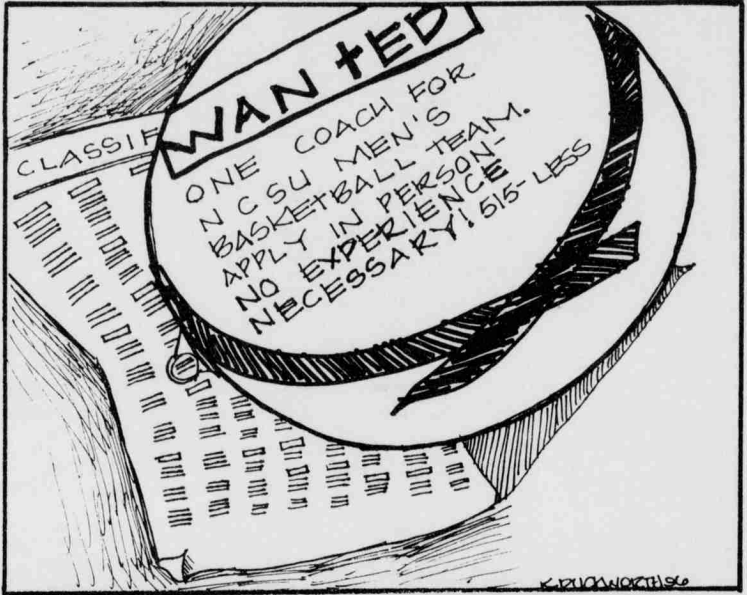 CLASSIF
WANTED
ONE COACH FOR
NCSU MEN'S
BASKETBALL TEAM.
APPLY IN PERSON-
NO EXPERIENCE
NECESSARY! 515-LESS
K. DUCKWORTH 96